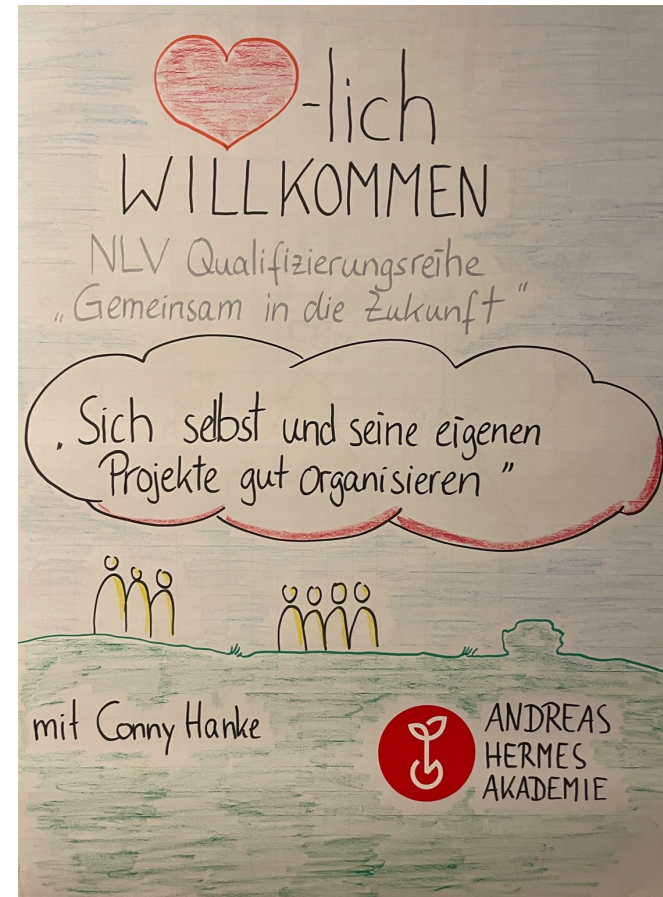 -lich
WILLKOMMEN
NLV Qualifizierungsreihe
„Gemeinsam in die Zukunft"
„Sich selbst und seine eigenen
Projekte gut organisieren"
mit Conny Hanke
ANDREAS
HERMES
AKADEMIE